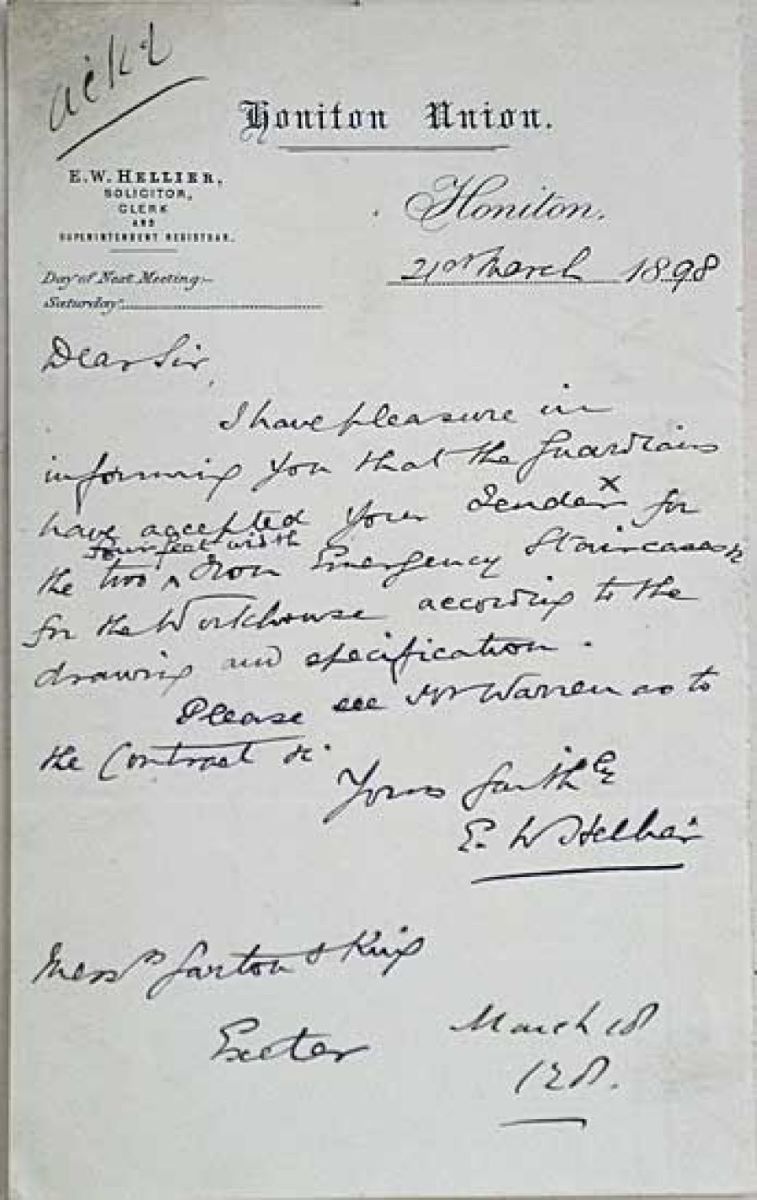 ackd
Honiton Union.
E. W. HELLIER,
SOLICITOR,
CLERK
AND
SUPERINTENDENT REGISTRAR.
Honiton.
21st March 1898
Day of Next Meeting:-
Saturday
Dear Sir,
I have pleasure in
informing you that the Guardians
have accepted your Tender x for
four feet width
the two ^ Iron Emergency Staircases
for the Workhouse according to the
drawing and specification.
Please see Mr Warren as to
the Contract &c.
Yours faithly
E. W Hellier
Messrs Garton & King
Exeter
March 18